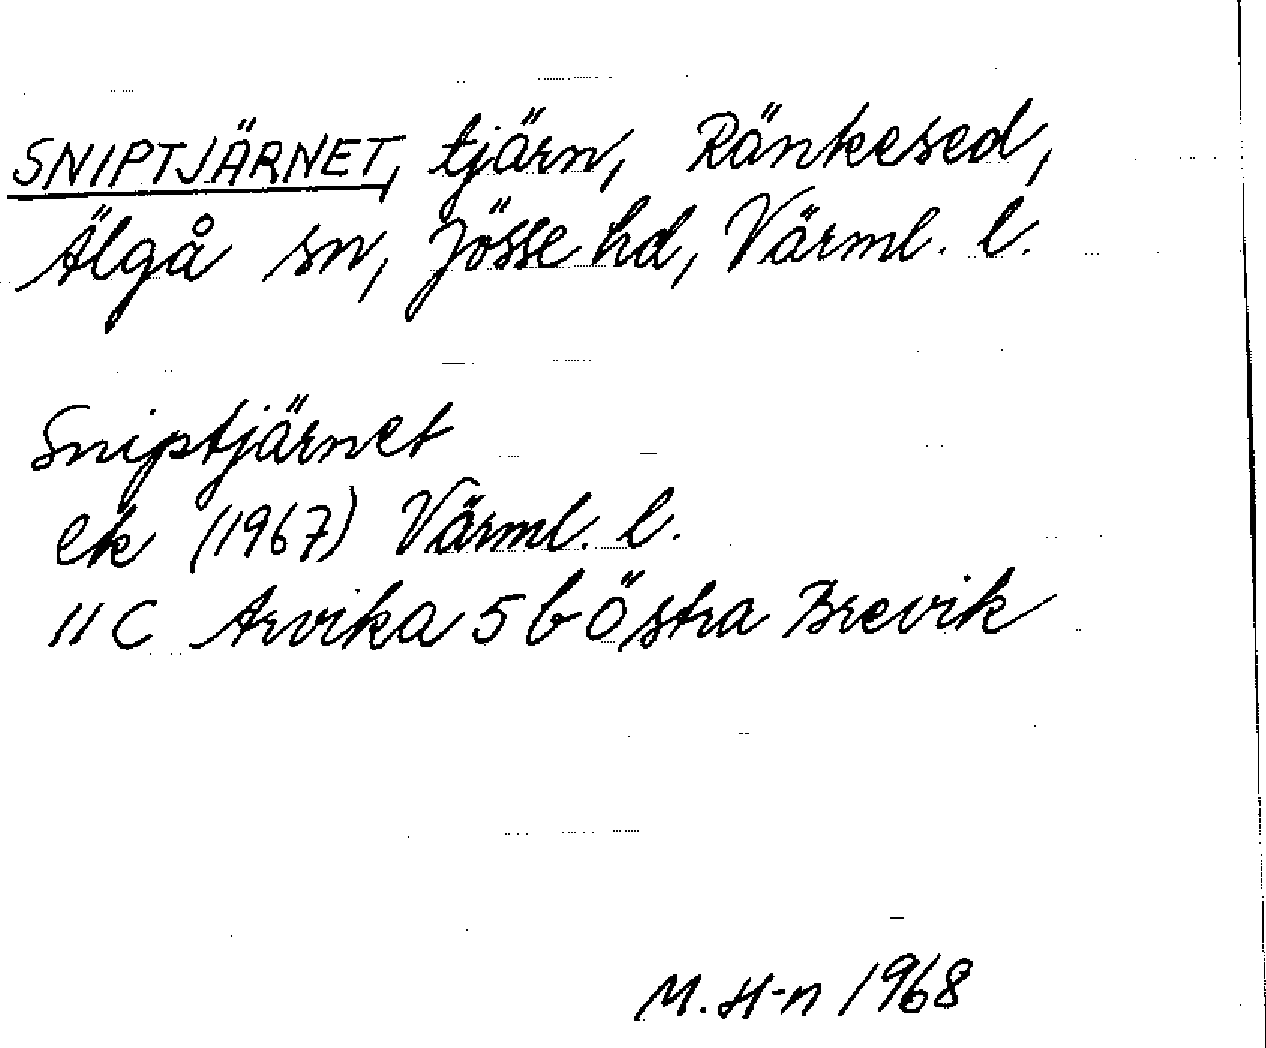 SNIPTJÄRNET, tjärn, Ränkesed,
Älgå sn, Jösse hd, Värml. l.
Sniptjärnet
ek (1967) Värml. l.
11 C Arvika 5 b Östra Brevik
M. H-n 1968